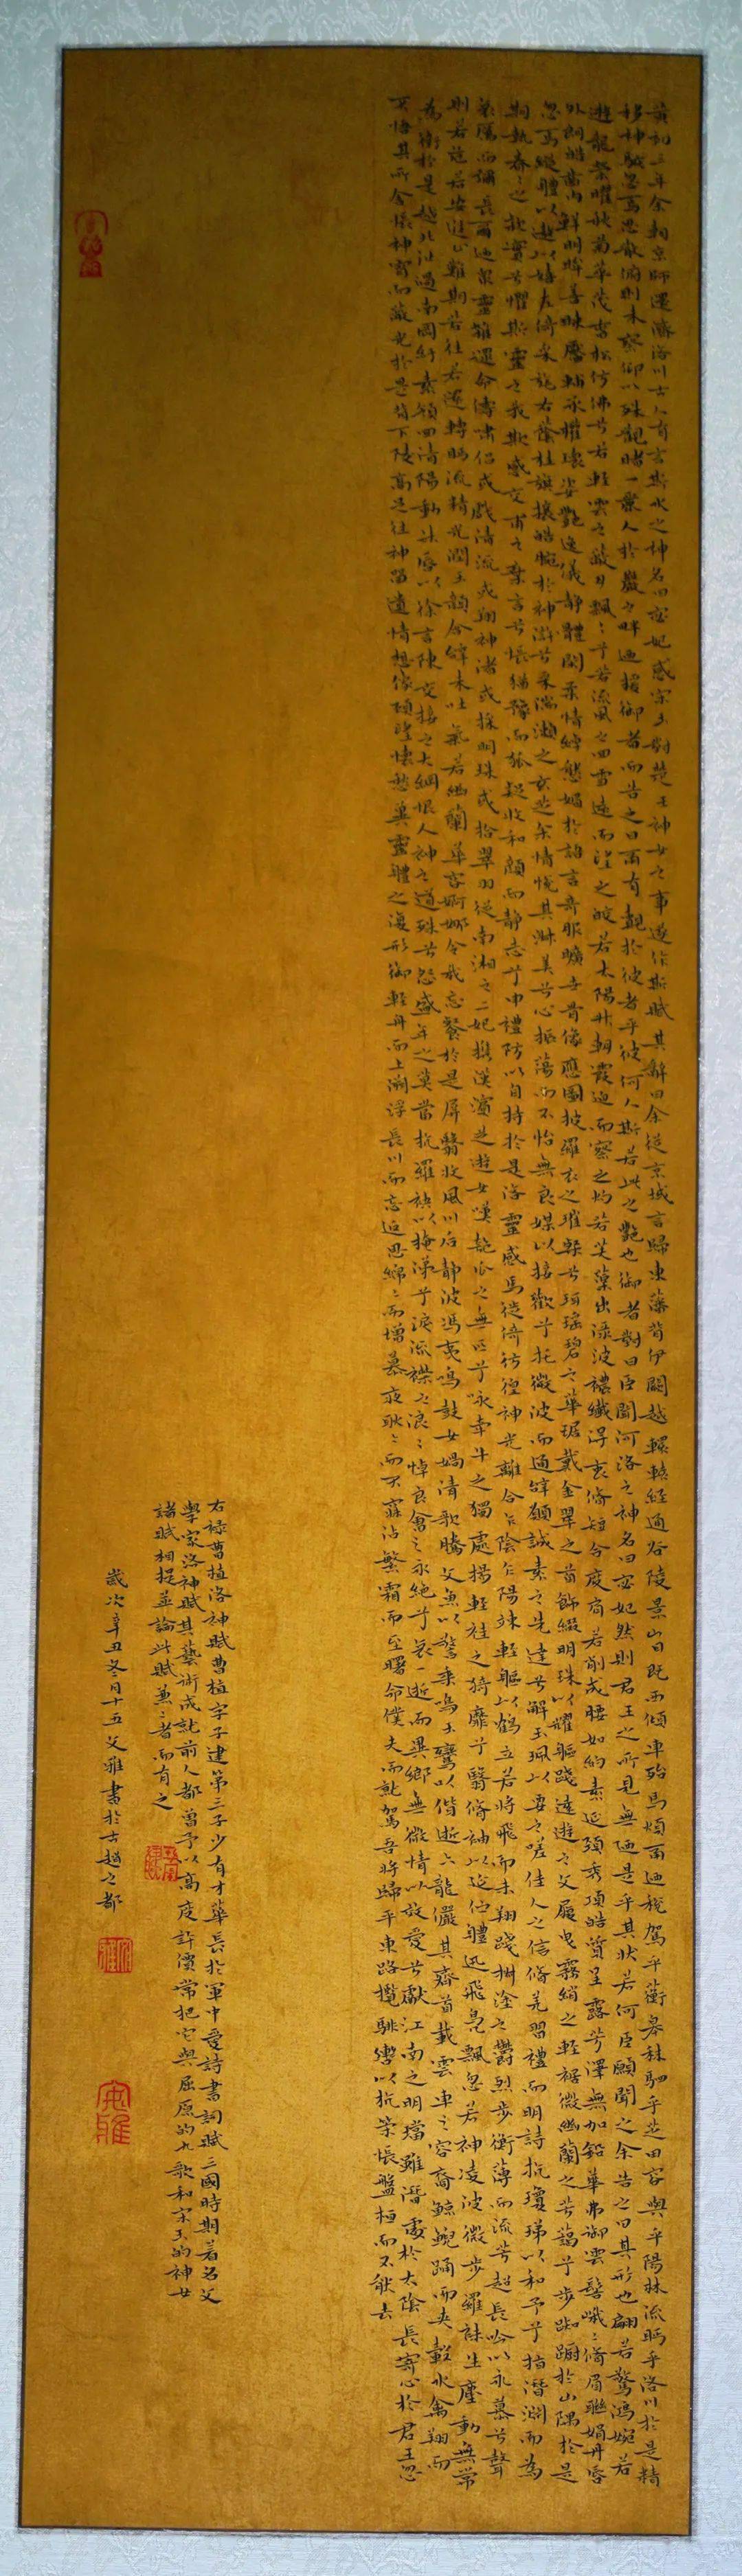 黃初三年余朝京師還濟洛川古人有言斯水之神名曰宓妃感宋玉對楚王神女之事遂作斯賦其辭曰余從京域言歸東藩背伊闕越轘轅經通谷陵景山日既西傾車殆馬煩爾迺稅駕乎蘅皋秣駟乎芝田容與乎陽林流眄乎洛川於是精
移神駭忽焉思散俯則未察仰以殊觀睹一麗人於巖之畔迺援御者而告之曰爾有覿於彼者乎彼何人斯若此之艷也御者對曰臣聞河洛之神名曰宓妃然則君王之所見無迺是乎其狀若何臣願聞之余告之曰其形也翩若驚鴻婉若
遊龍榮曜秋菊華茂春松仿佛兮若輕雲之蔽月飄〻兮若流風之回雪遠而望之皎若太陽升朝霞迫而察之灼若芙蕖出淥波襛纖得衷脩短合度肩若削成腰如約素延頸秀項皓質呈露芳澤無加鉛華弗御雲髻峨〻脩眉聯娟丹唇
外朗皓齒內鮮明眸善睞靨輔承權瓌姿艷逸儀靜體閑柔情綽態媚於語言奇服曠世骨像應圖披羅衣之璀粲兮珥瑤碧之華琚戴金翠之首飾綴明珠以耀軀踐遠遊之文履曳霧綃之輕裾微幽蘭之芳藹兮步踟躕於山隅於是
忽焉縱體以遨以嬉左倚采旄右蔭桂旗攘皓腕於神滸兮采湍瀨之玄芝余情悅其淑美兮心振蕩而不怡無良媒以接歡兮托微波而通辭願誠素之先達兮解玉珮以要之嗟佳人之信脩羌習禮而明詩抗瓊珶以和予兮指潛淵而為
期執眷〻之款實兮懼斯靈之我欺感交甫之棄言兮悵猶豫而狐疑收和顏而靜志兮申禮防以自持於是洛靈感焉徙倚彷徨神光離合乍陰乍陽竦輕軀以鶴立若將飛而未翔踐椒塗之鬱烈步蘅薄而流芳超長吟以永慕兮聲
哀厲而彌長爾迺眾靈雜遝命儔嘯侶或戲清流或翔神渚或採明珠或拾翠羽從南湘之二妃攜漢濱之遊女嘆匏瓜之無匹兮詠牽牛之獨處揚輕袿之猗靡兮翳脩袖以延佇體迅飛鳧飄忽若神凌波微步羅襪生塵動無常
則若危若安進止難期若往若還轉眄流精光潤玉顏含辭未吐氣若幽蘭華容婀娜令我忘餐於是屏翳收風川后靜波馮夷鳴鼓女媧清歌騰文魚以警乘鳴玉鸞以偕逝六龍儼其齊首載雲車之容裔鯨鯢踊而夾轂水禽翔而
為衛於是越北沚過南岡紆素領回清陽動朱唇以徐言陳交接之大綱恨人神之道殊兮怨盛年之莫當抗羅袂以掩涕兮淚流襟之浪〻悼良會之永絕兮哀一逝而異鄉無微情以效愛兮獻江南之明璫雖潛處於太陰長寄心於君王忽
不悟其所舍悵神宵而蔽光於是背下陵高足往神留遺情想像顧望懷愁冀靈體之復形御輕舟而上溯浮長川而忘返思綿〻而增慕夜耿〻而不寐沾繁霜而至曙命僕夫而就駕吾將歸乎東路攬騑轡以抗策悵盤桓而不能去
右錄曹植洛神賦曹植字子建第三子少有才華長於軍中愛詩書詞賦三國時期著名文
學家洛神賦其藝術成就前人都曾予以高度評價常把它與屈原的九歌和宋玉的神女
諸賦相提並論此賦兼二者而有之
歲次辛丑冬月十五文雅書於古趙之都